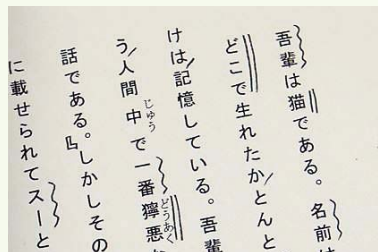 吾輩は猫である。名前は
どこで生れたかとんと
けは記憶している。吾輩
じゅう どうあく
う人間中で一番獰悪
話である。しかしその
に載せられてスーと